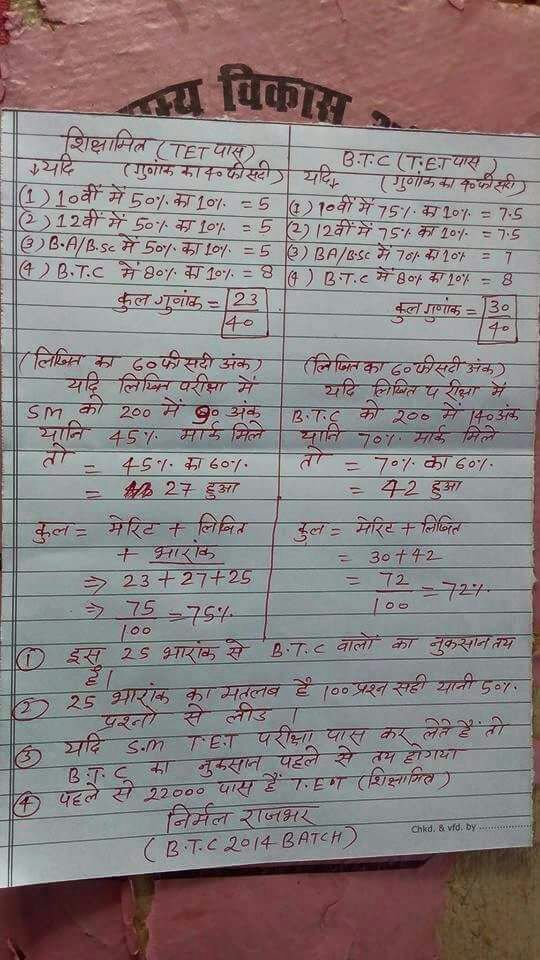 विकास
शिक्षामित्र (TET पास)
↓यदि (गुणांक का 40 फीसदी)
(1) 10वीं में 50% का 10% = 5
(2) 12वीं में 50% का 10% = 5
(3) B.A/B.Sc में 50% का 10% = 5
(4) B.T.C में 80% का 10% = 8
कुल गुणांक = 23/40
(लिखित का 60 फीसदी अंक)
यदि लिखित परीक्षा में
SM को 200 में 90 अंक
यानि 45% मार्क मिले
तो = 45% का 60%
= 27 हुआ
कुल = मेरिट + लिखित
+ भारांक
⇒ 23+27+25
⇒ 75/100 = 75%
B.T.C (T.ET पास)
यदि↓ (गुणांक का 40 फीसदी)
(1) 10वीं में 75% का 10% = 7.5
(2) 12वीं में 75% का 10% = 7.5
(3) BA/BSc में 70% का 10% = 7
(4) B.T.C में 80% का 10% = 8
कुल गुणांक = 30/40
(लिखित का 60 फीसदी अंक)
यदि लिखित परीक्षा में
B.T.C को 200 में 140 अंक
यानि 70% मार्क मिले
तो = 70% का 60%
= 42 हुआ
कुल = मेरिट + लिखित
= 30+42
= 72/100 = 72%
① इस 25 भारांक से B.T.C वालों का नुकसान तय
है।
② 25 भारांक का मतलब है 100 प्रश्न सही यानी 50%
प्रश्नो से लीड।
③ यदि S.M T.E.T परीक्षा पास कर लेते हैं तो
B.T.C का नुकसान पहले से तय होगया
④ पहले से 22000 पास हैं T.ET (शिक्षामित्र)
निर्मल राजभर
(B.T.C 2014 BATCH)
Chkd. & vfd. by ..................